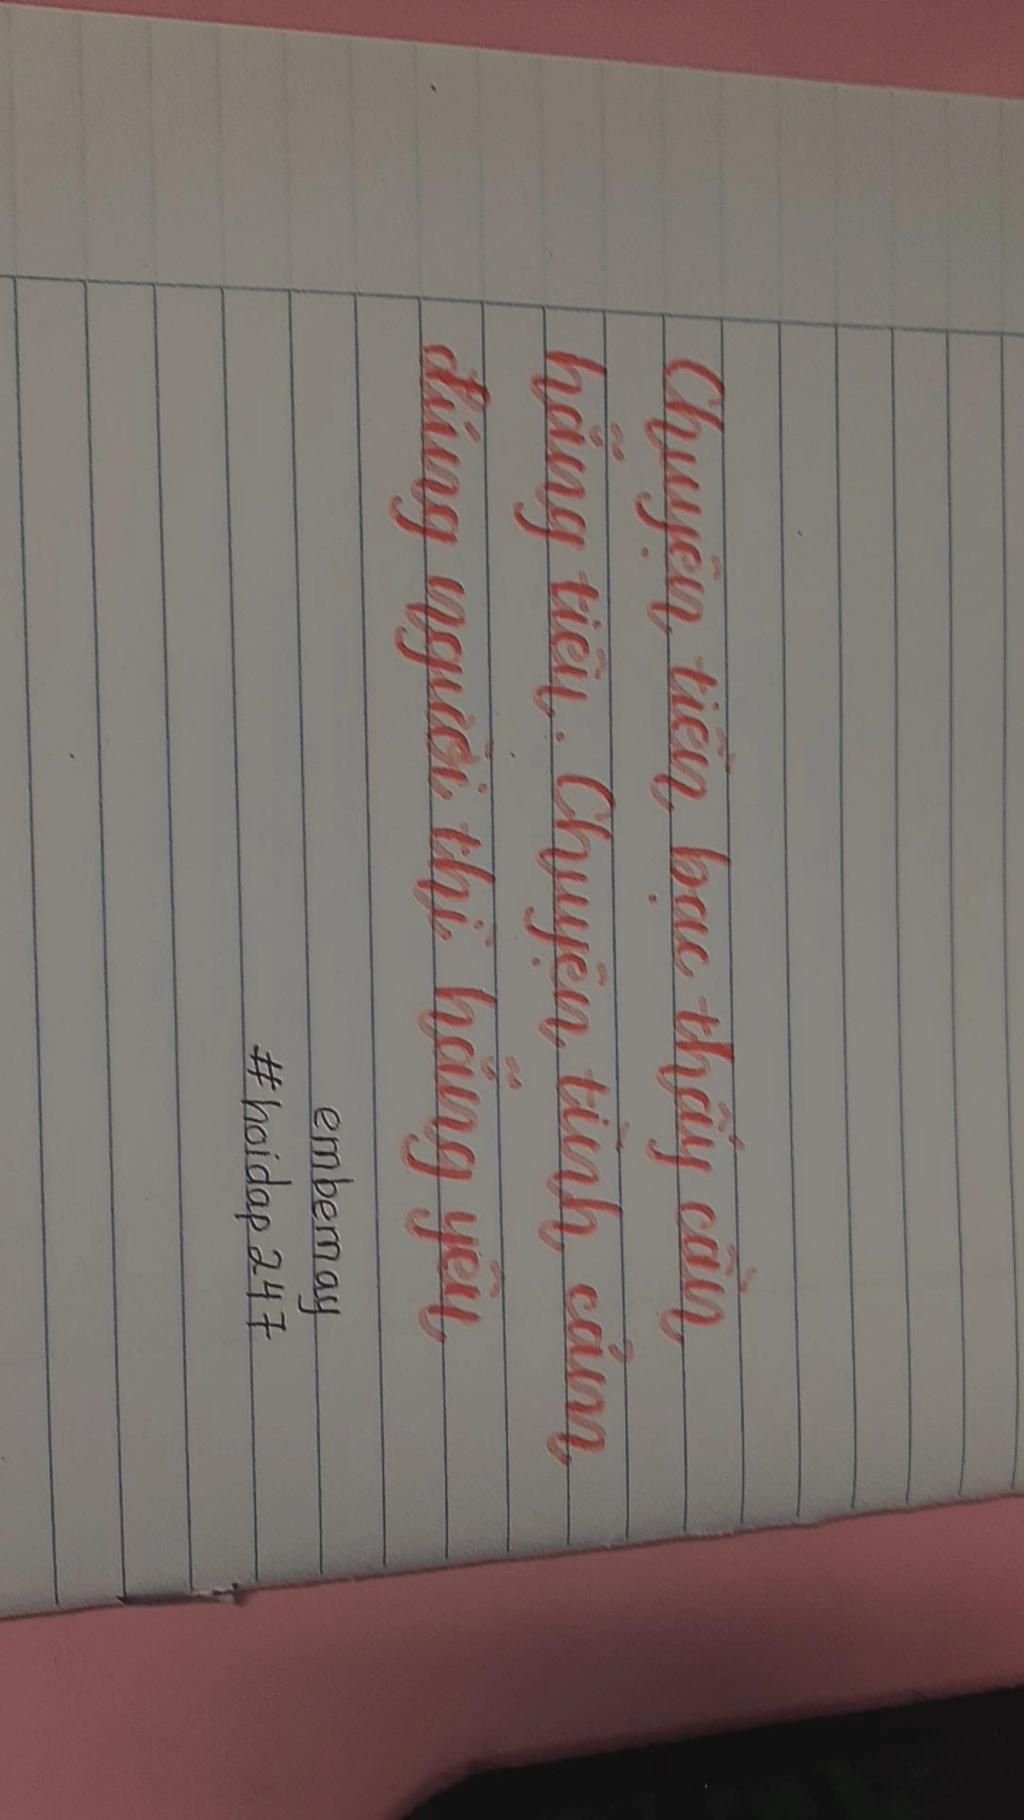 Chuyện tiền bạc thấy cần
hẵng tiên. Chuyện tình cảm
đúng người thì hẵng yên
embemay
#hoidap247